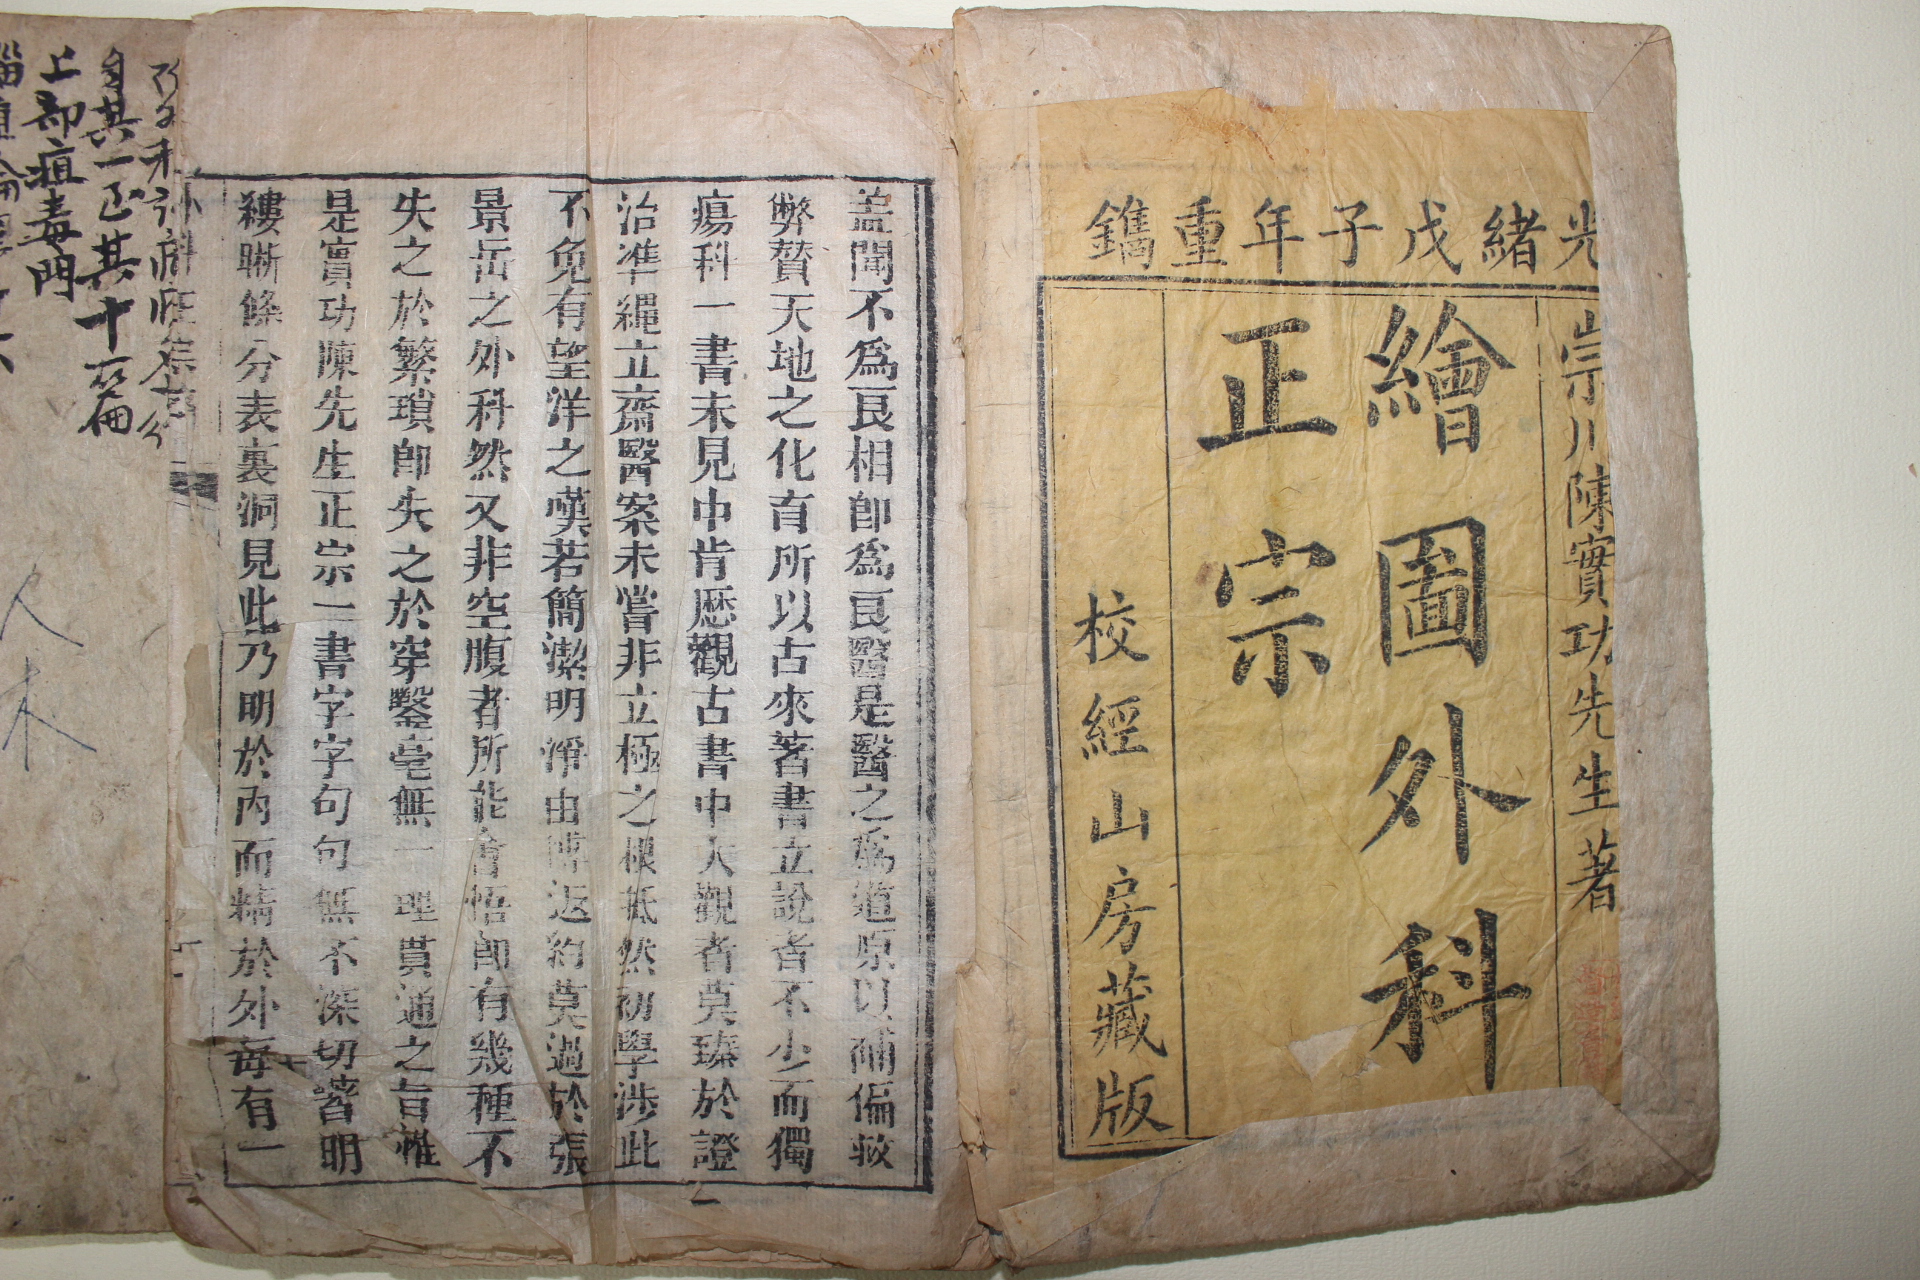 光緒戊子年重鐫
崇川陳實功先生著
繪圖外科
正宗
校經山房藏版
蓋聞不爲良相卽爲良醫是醫之爲道原以補偏救
弊贊天地之化育所以古來著書立說者不少而獨
瘍科一書未見中肯歷觀古書中大觀者莫臻於證
治準繩立齋醫案未嘗非立極之根柢然初學涉此
不免有望洋之嘆若簡潔明淨由博返約莫過於張
景岳之外科然又非空腹者所能會悟卽有幾種不
失之於繁瑣卽失之於穿鑿毫無一理貫通之旨惟
是實功陳先生正宗一書字字句句無不深切著明
縷晰條分表裏洞見此乃明於內而精於外每有一
自其一正其十篇
上部疽毒門